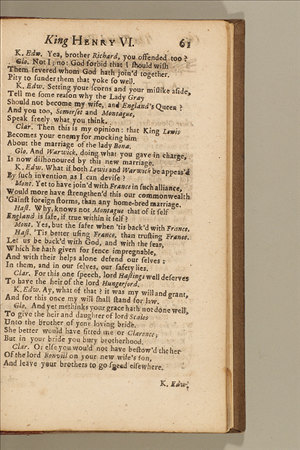 King HENRY VI. 61
K. Edw. Yea, brother Richard, you offended too?
Glo. Not I; no: God forbid that I should wish
Them severed whom God hath join'd together.
Pity to sunder them that yoke so well.
K. Edw. Setting your scorns and your mislike aside,
Tell me some reason why the Lady Gray
Should not become my wife, and England's Queen?
And you too, Somerset and Montague,
Speak freely what you think.
Clar. Then this is my opinion: that King Lewis
Becomes your enemy for mocking him
About the marriage of the lady Bona.
Glo. And Warwick, doing what you gave in charge,
Is now dishonoured by this new marriage.
K. Edw. What if both Lewis and Warwick be appeas'd
By such invention as I can devise?
Mont. Yet to have join'd with France in such alliance,
Would more have strengthen'd this our commonwealth
'Gainst foreign storms, than any home-bred marriage.
Hast. Why, knows not Montague that of it self
England is safe, if true within it self?
Mont. Yes, but the safer when 'tis back'd with France.
Hast. 'Tis better using France, than trusting France.
Let us be back'd with God, and with the seas,
Which he hath given for fence impregnable,
And with their helps alone defend our selves:
In them, and in our selves, our safety lies.
Clar. For this one speech, lord Hastings well deserves
To have the heir of the lord Hungerford.
K. Edw. Ay, what of that? it was my will and grant,
And for this once my will shall stand for law.
Glo. And yet methinks your grace hath not done well,
To give the heir and daughter of lord Scales
Unto the brother of your loving bride.
She better would have fitted me or Clarence;
But in your bride you bury brotherhood.
Clar. Or else you wou'd not have bestow'd the heir
Of the lord Bonvill on your new wife's son,
And leave your brothers to go speed elsewhere.
K. Edw.